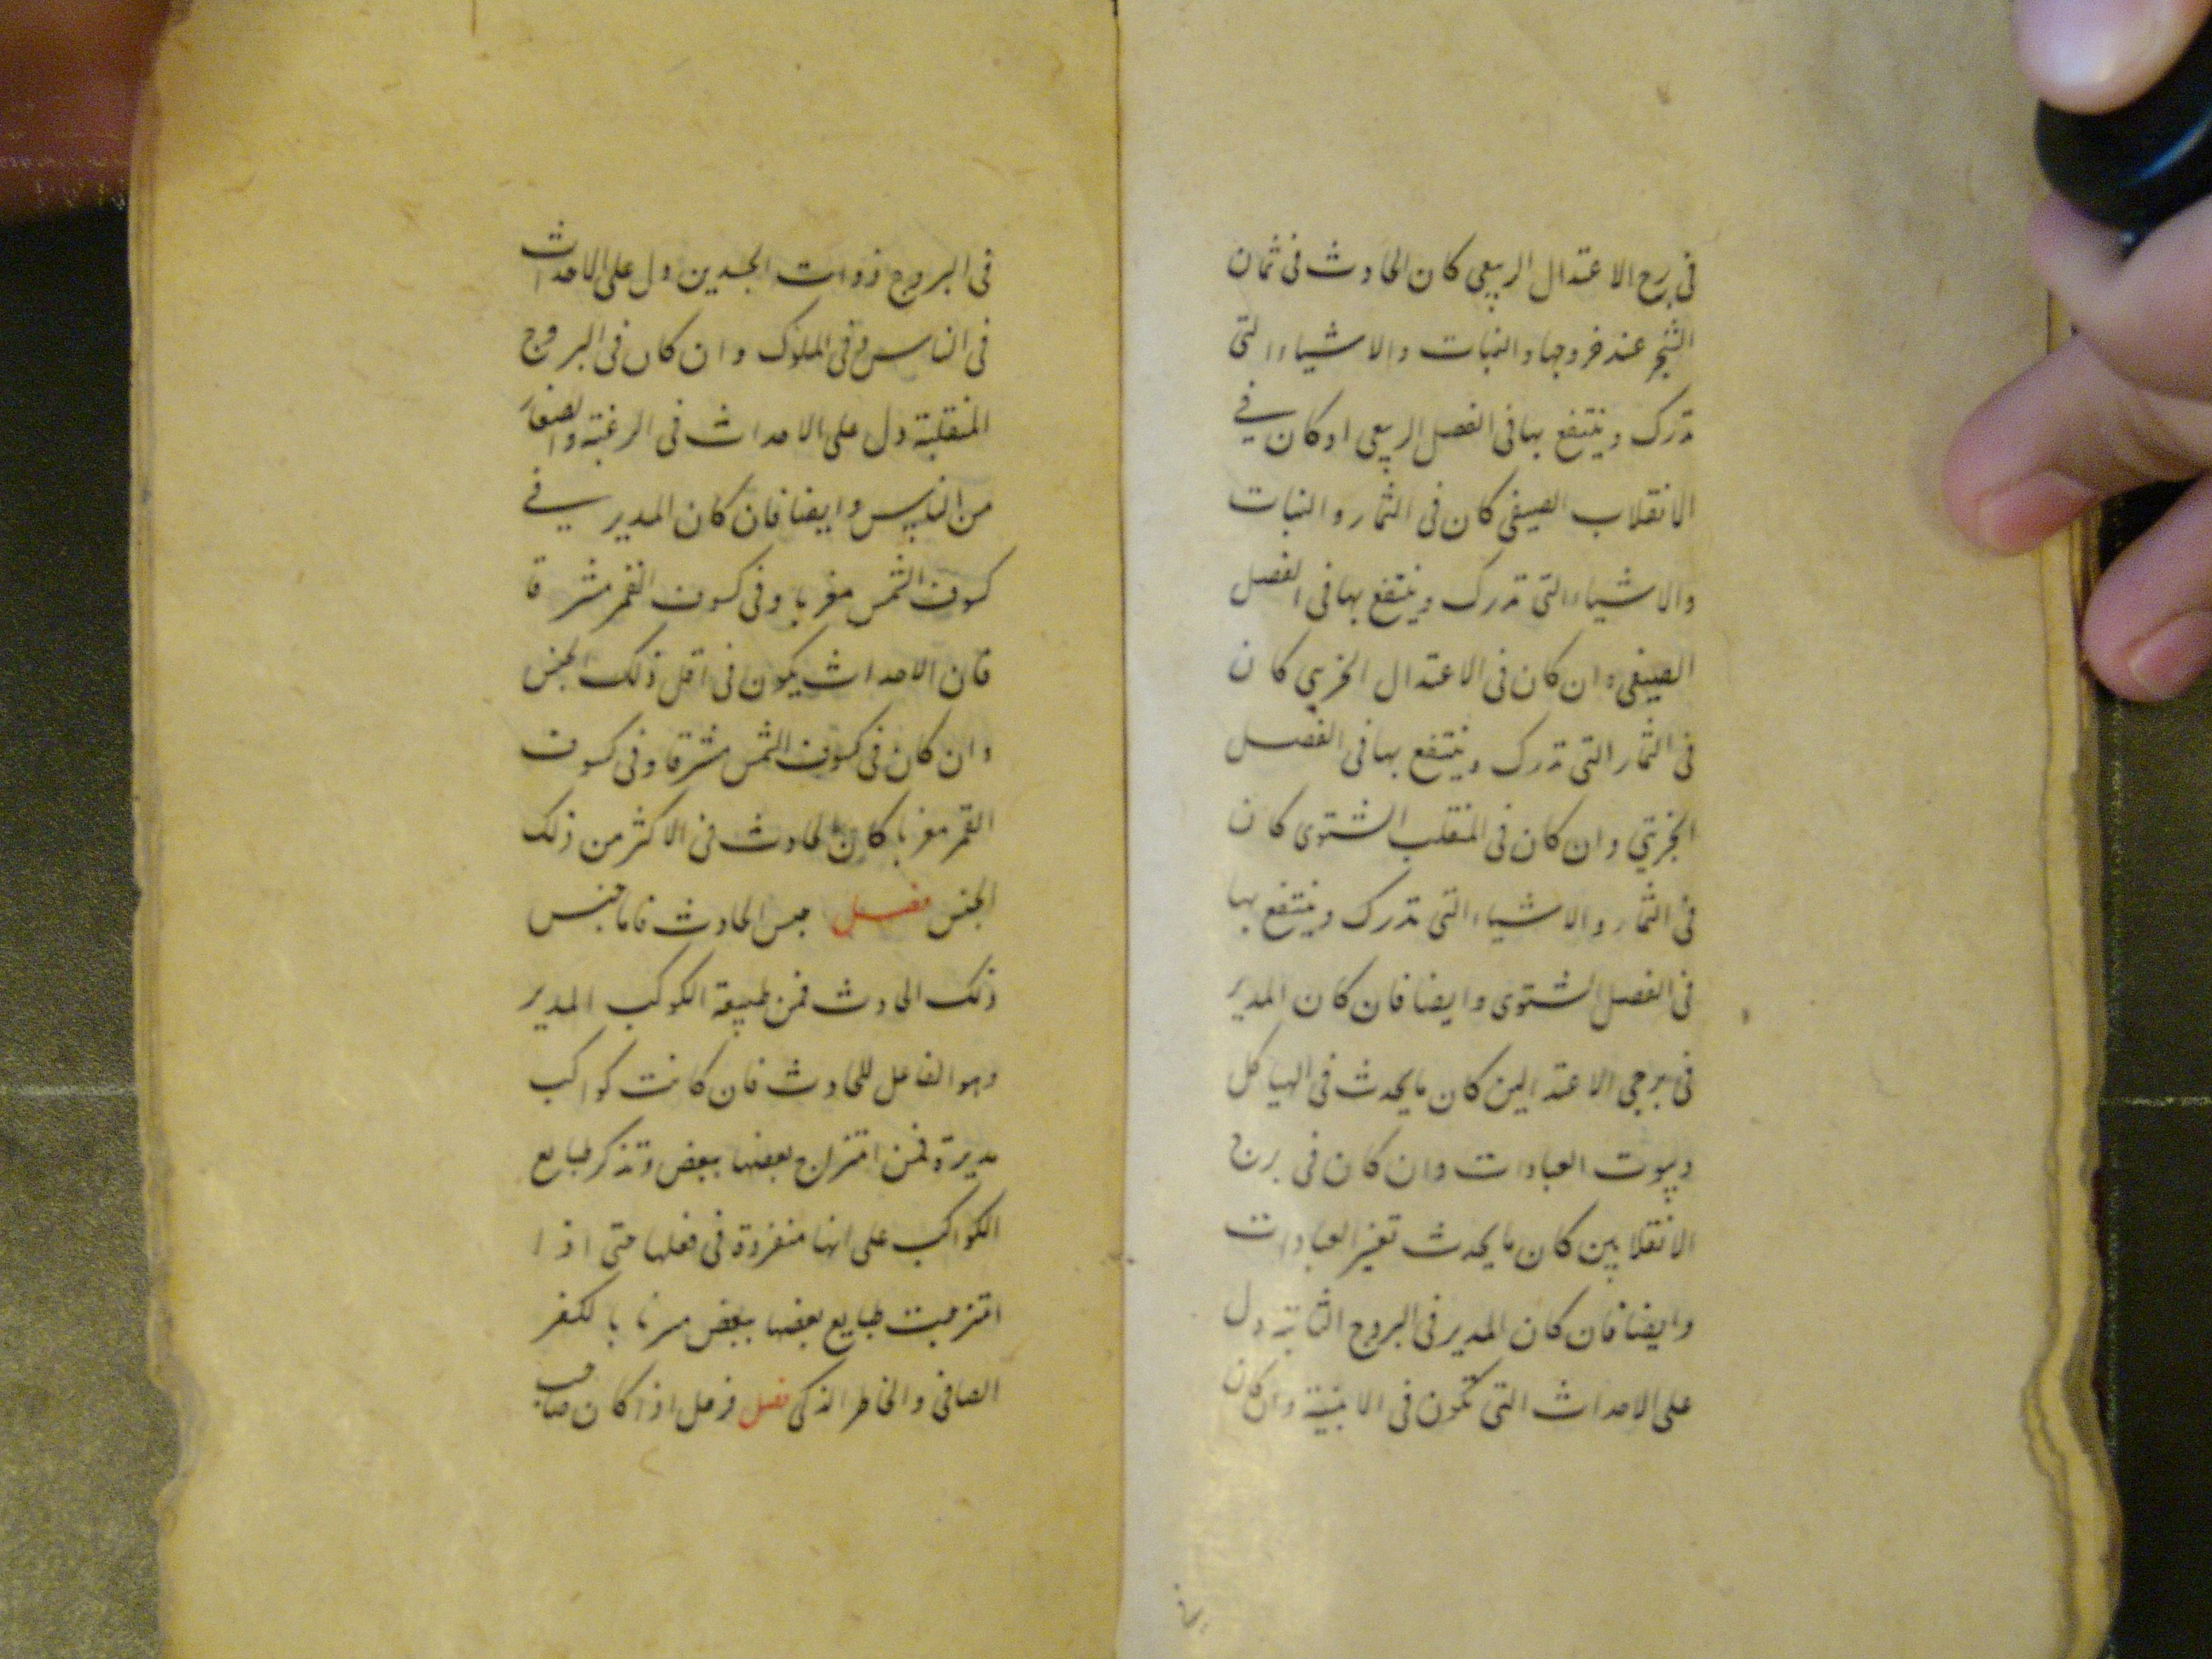 فى برج الاعتدال الربيعى كان الحادث فى ثمان
الشجر عند خروجها والنبات والاشياء التى
تدرك وينتفع بها فى الفصل الربيعى او كان فى
الانقلاب الصيفى كان فى الثمار والنبات
والاشياء التى تدرك وينتفع بها فى الفصل
الصيفى وان كان فى الاعتدال الخريفى كان
فى الثمار التى تدرك وينتفع بها فى الفصل
الخريفى وان كان فى المنقلب الشتوى كان
فى الثمار والاشياء التى تدرك وينتفع بها
فى الفصل الشتوى وايضا فان كان المدير
فى برجى الاعتدالين كان ما يحدث فى الهياكل
وبيوت العبادات وان كان فى برج
الانقلابين كان ما يحدث تغير العبادات
وايضا فان كان المدير فى البروج الثابتة دل
على الاحداث التى تكون فى الابنية وان كان
فى البروج ذوات الجسدين دل على الاحداث
فى الناس وفى الملوك وان كان فى البروج
المنقلبة دل على الاحداث فى الرغبة والصغار
من الناس وايضا فان كان المدير فى
كسوف الشمس مغربا وفى كسوف القمر مشرقا
فان الاحداث يكون فى اقل ذلك الجنس
وان كان فى كسوف الشمس مشرقا وفى كسوف
القمر مغربا كان الحادث فى الاكثر من ذلك
الجنس فصل جنس الحادث فاما جنس
ذلك الحادث فمن طبيعة الكوكب المدير
وهو الفاعل للحادث فان كانت كواكب
مديرة فمن امتزاج بعضها ببعض ونذكر طبايع
الكواكب على انها منفردة فى فعلها حتى اذا
امتزجت طبايع بعضها ببعض مزنا بالكفر
الصافى والخاطر الذكى فصل فزحل اذا كان صاحب